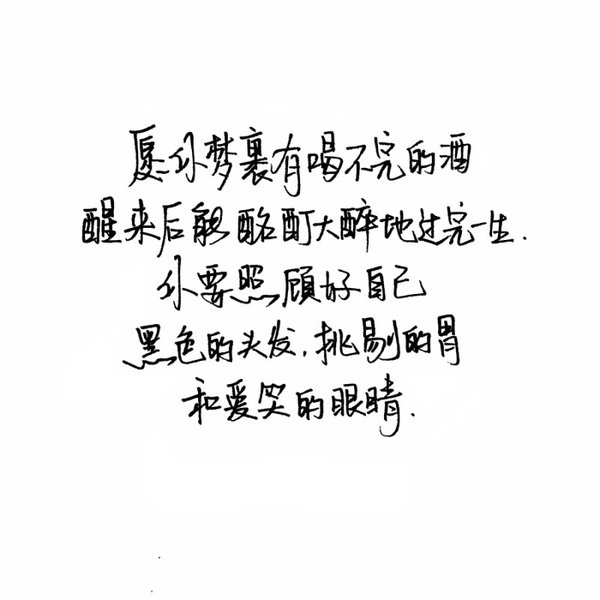 愿你梦裏有喝不完的酒
醒来后能酩酊大醉地过完一生.
你要照顾好自己
黑色的头发,挑剔的胃
和爱笑的眼睛.